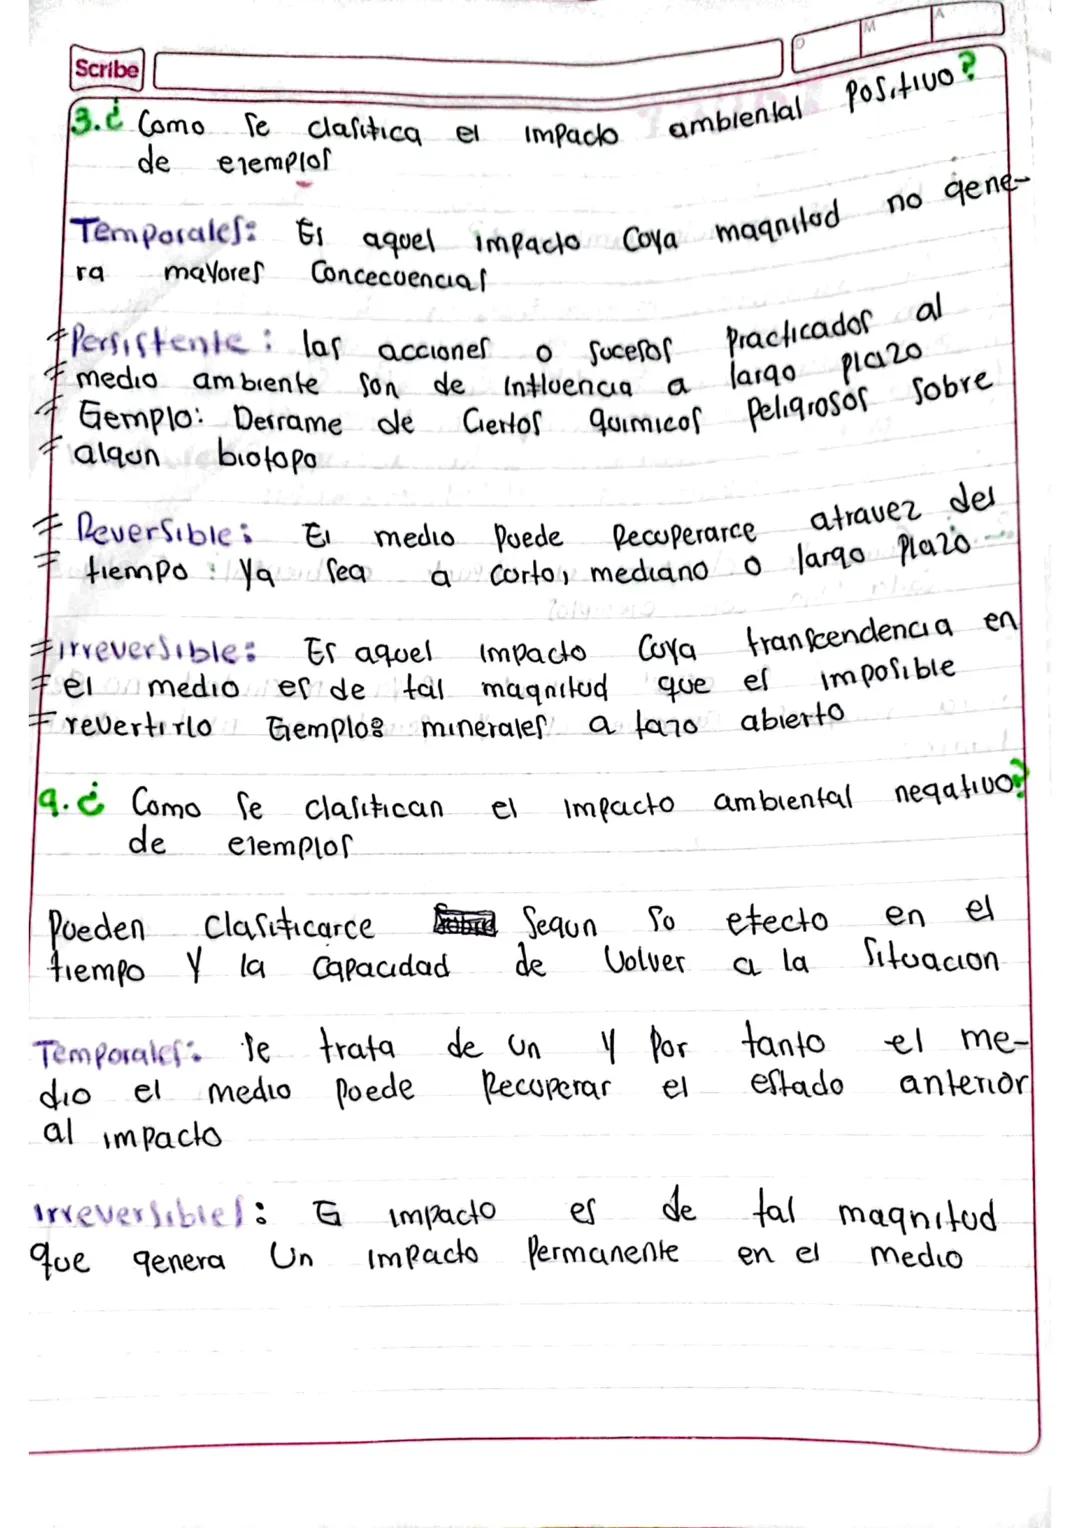 Scribe
D M A
3.¿ Como se clasifica el impacto ambiental positivo?
de ejemplos
Temporales: Es aquel impacto Cuya magnitud no gene-
ra mayores Concecuencias
Persistente: las acciones o sucesos practicados al
medio ambiente son de influencia a largo plazo
Ejemplo: Derrame de Ciertos quimicos peligrosos sobre
algun biotopo
Reversible: El medio puede Recuperarce atravez del
tiempo: ya sea a corto, mediano o largo plazo
irreversible: Es aquel impacto Cuya transcendencia en
el medio es de tal magnitud que es imposible
revertirlo Ejemplos minerales a tajo abierto
9.¿ Como se clasifican el impacto ambiental negativo?
de ejemplos
Pueden Clasificarce Segun su efecto en el
tiempo y la Capacidad de Volver a la Situacion
Temporales: Se trata de un y por tanto el me-
dio el medio puede Recuperar el estado anterior
al impacto
irreversibles: El impacto es de tal magnitud
que genera Un impacto Permanente en el medio